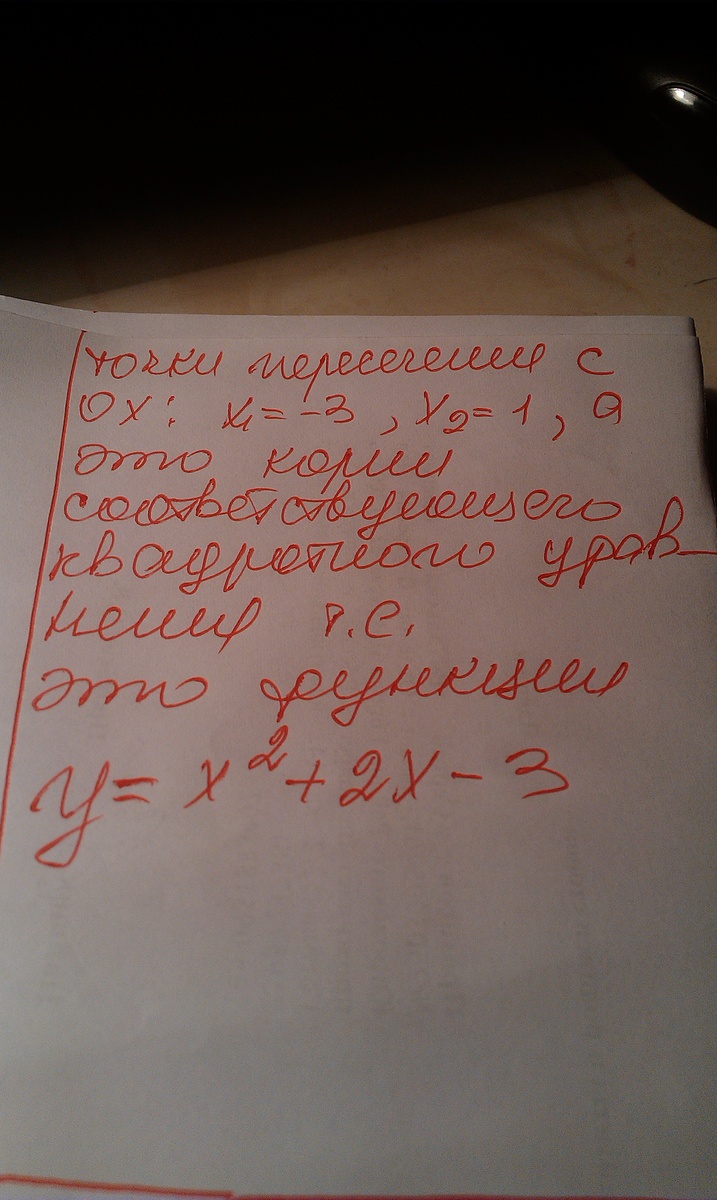 точки пересечения с
OX: x₁ = -3, x₂ = 1, а
это корни
соответствующего
квадратного урав-
нения т.е.
это функция
y = x² + 2x - 3